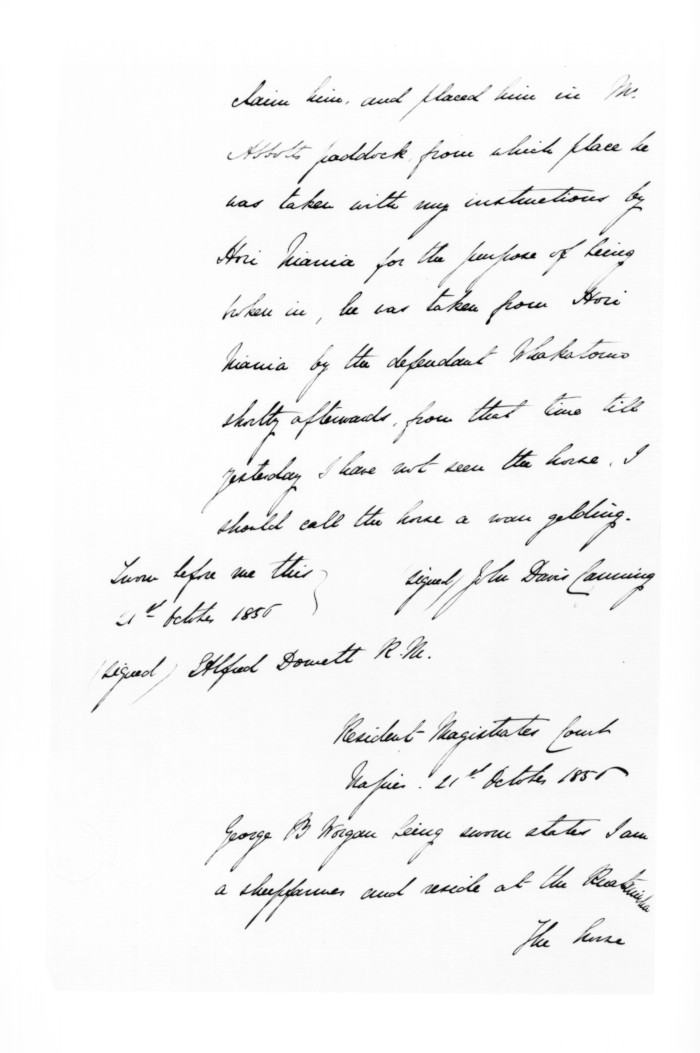 claim him, and placed him in Mr.
Abbotts paddock, from which place he
was taken with my instructions by
Hori Niania for the purpose of being
broken in, he was taken from Hori
Niania by the defendant Whakatomo
shortly afterwards, from that time till
yesterday I have not seen the horse, I
should call the horse a roan gelding.
Sworn before me this } signed) John Davis Canning
21st October 1856
(signed) Alfred Domett R.M.
Resident Magistrates Court
Napier. 21st October 1856
George B Worgan being sworn states I am
a sheepfarmer and reside at the
The horse